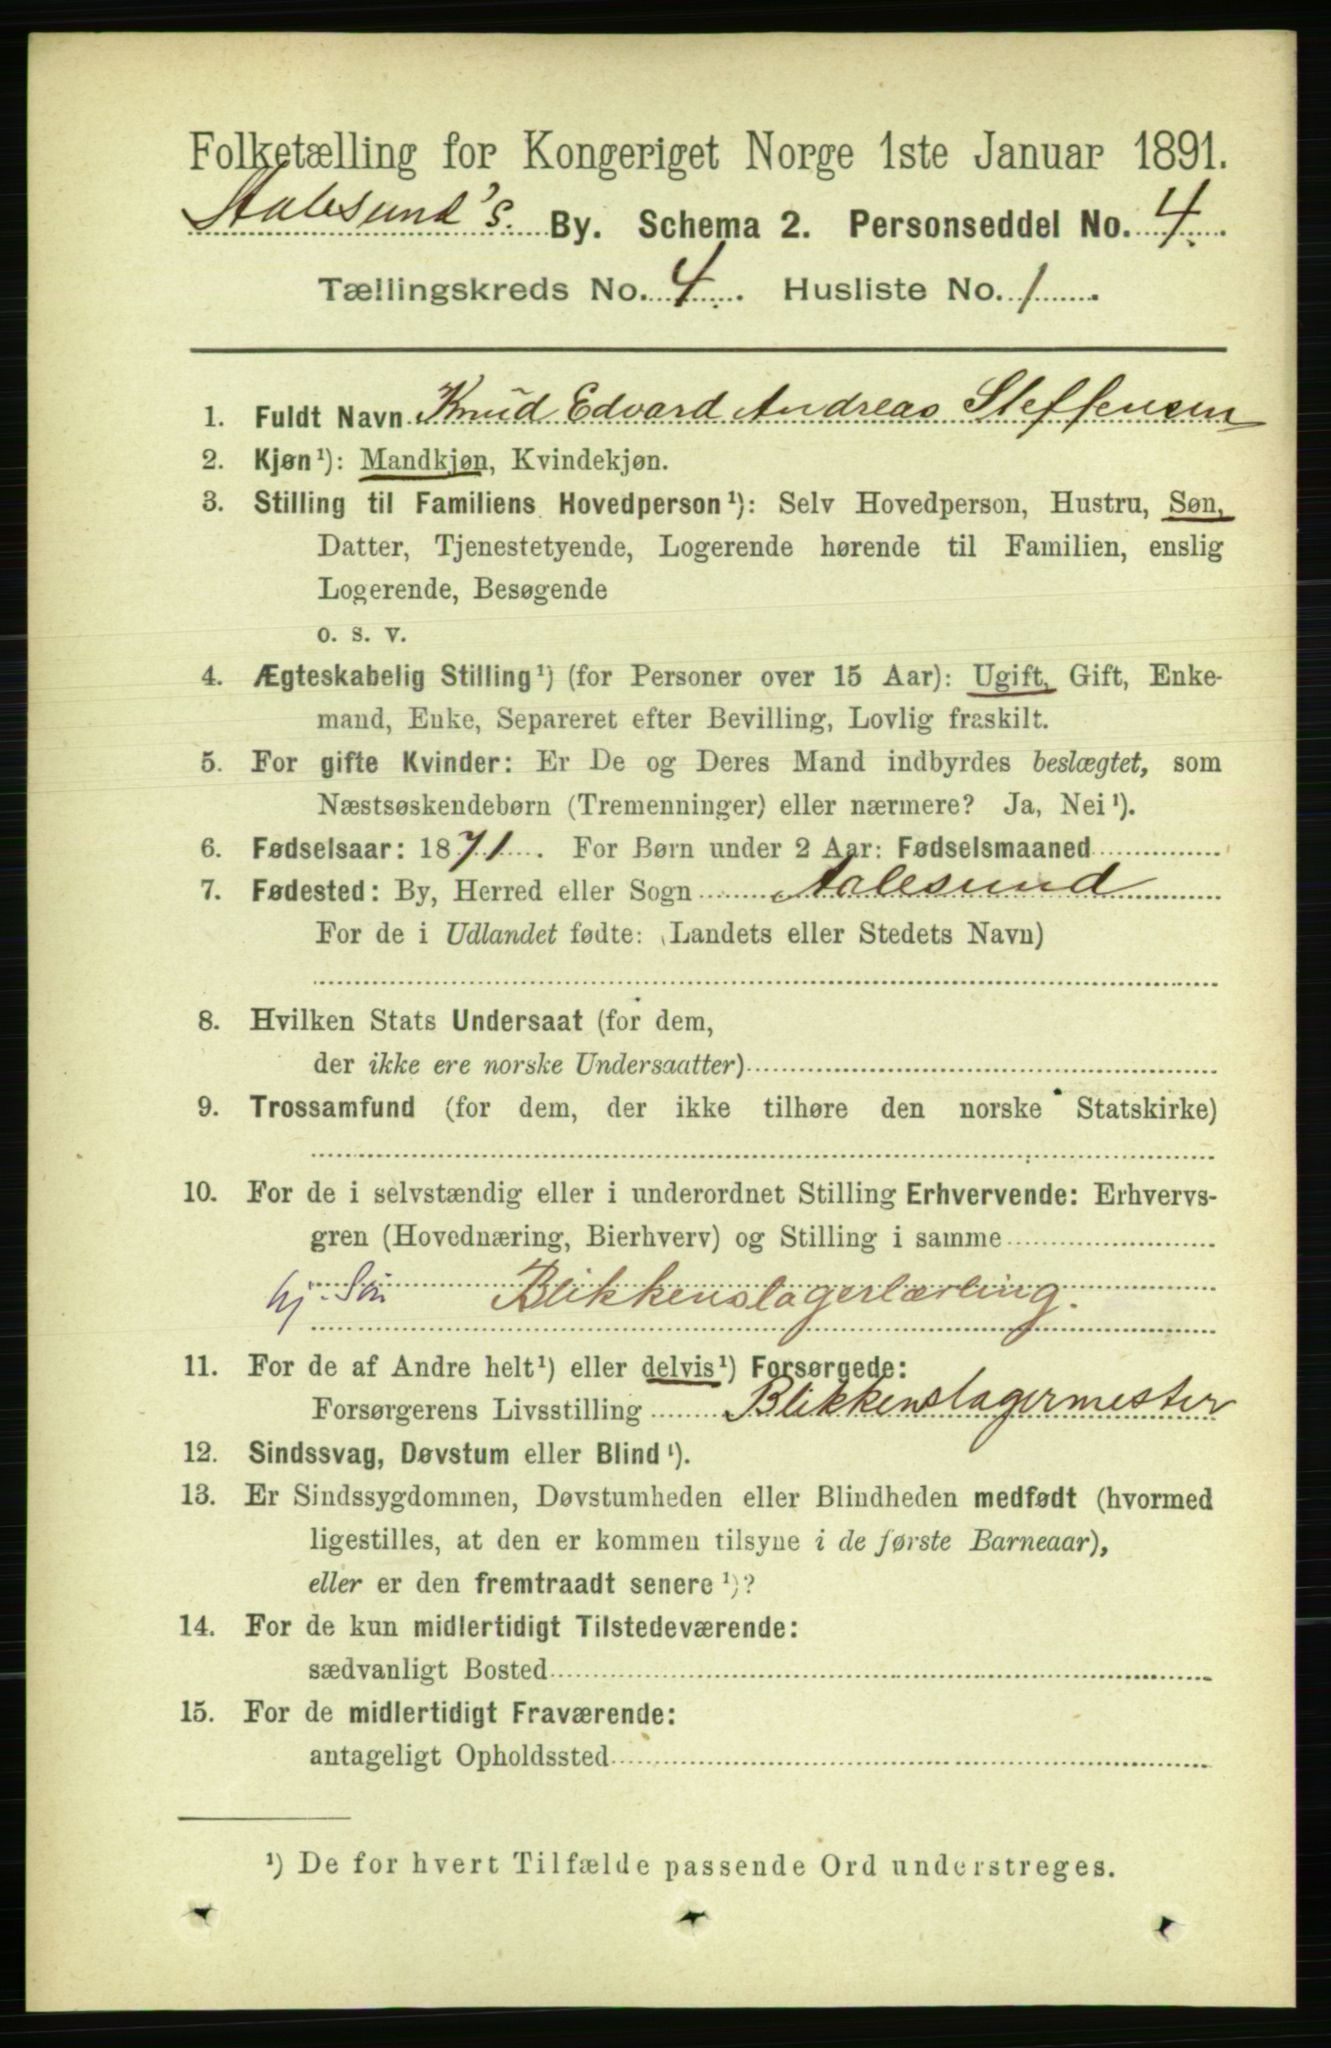 Folketælling for Kongeriget Norge 1ste Januar 1891.
Aalesund's By. Schema 2. Personseddel No. 4.
Tællingskreds No. 4. Husliste No. 1.
1. Fuldt Navn Knud Edvard Andreas Steffensen
2. Kjøn¹): Mandkjøn, Kvindekjøn.
3. Stilling til Familiens Hovedperson¹): Selv Hovedperson, Hustru, Søn,
Datter, Tjenestetyende, Logerende hørende til Familien, enslig
Logerende, Besøgende
o. s. v.
4. Ægteskabelig Stilling¹) (for Personer over 15 Aar): Ugift, Gift, Enke-
mand, Enke, Separeret efter Bevilling, Lovlig fraskilt.
5. For gifte Kvinder: Er De og Deres Mand indbyrdes beslægtet, som
Næstsøskendebørn (Tremenninger) eller nærmere? Ja, Nei¹).
6. Fødselsaar: 1871. For Børn under 2 Aar: Fødselsmaaned
7. Fødested: By, Herred eller Sogn Aalesund
For de i Udlandet fødte: (Landets eller Stedets Navn)
8. Hvilken Stats Undersaat (for dem,
der ikke ere norske Undersaatter)
9. Trossamfund (for dem, der ikke tilhøre den norske Statskirke)
10. For de i selvstændig eller i underordnet Stilling Erhvervende: Erhvervs-
gren (Hovednæring, Bierhverv) og Stilling i samme
hj. Søn Blikkenslagerlærling.
11. For de af Andre helt¹) eller delvis¹) Forsørgede:
Forsørgerens Livsstilling Blikkenslagermester
12. Sindssvag, Døvstum eller Blind¹).
13. Er Sindssygdommen, Døvstumheden eller Blindheden medfødt (hvormed
ligestilles, at den er kommen tilsyne i de første Barneaar),
eller er den fremtraadt senere¹)?
14. For de kun midlertidigt Tilstedeværende:
sædvanligt Bosted
15. For de midlertidigt Fraværende:
antageligt Opholdssted
¹) De for hvert Tilfælde passende Ord understreges.